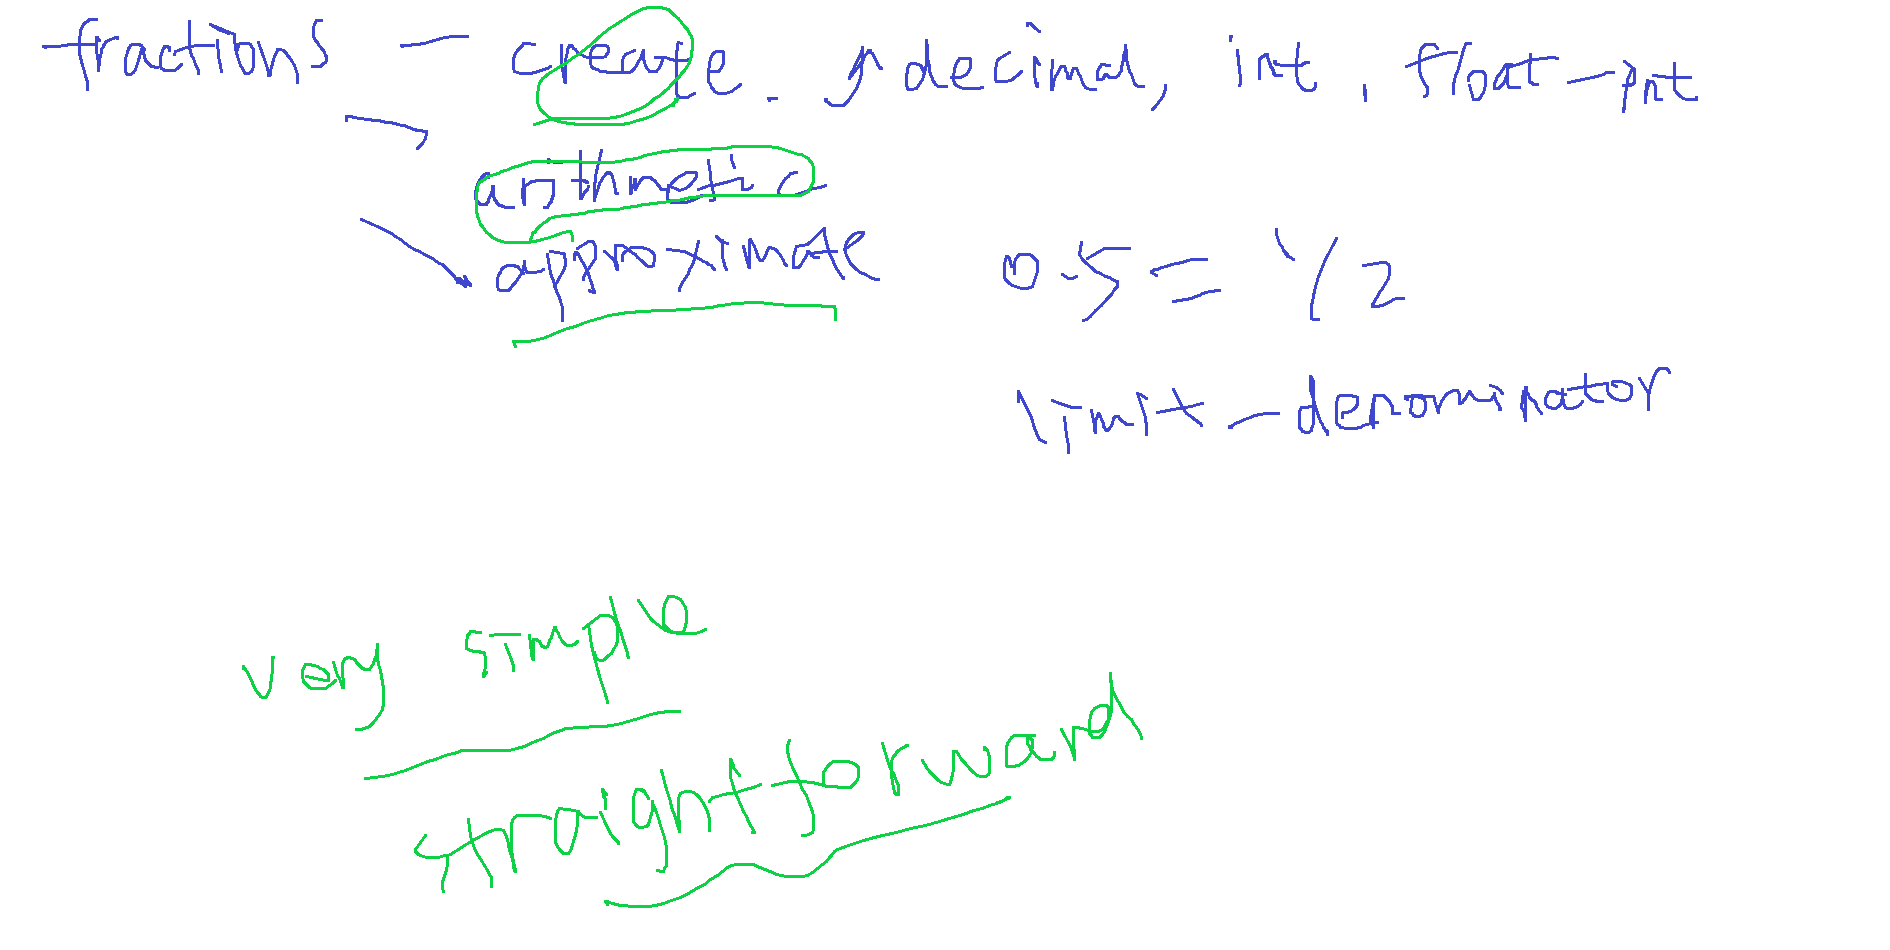 fractions - create. decimal, int, float-pnt
arithmetic
approximate 0.5 = 1/2
limit_denominator
very simple
straightforward